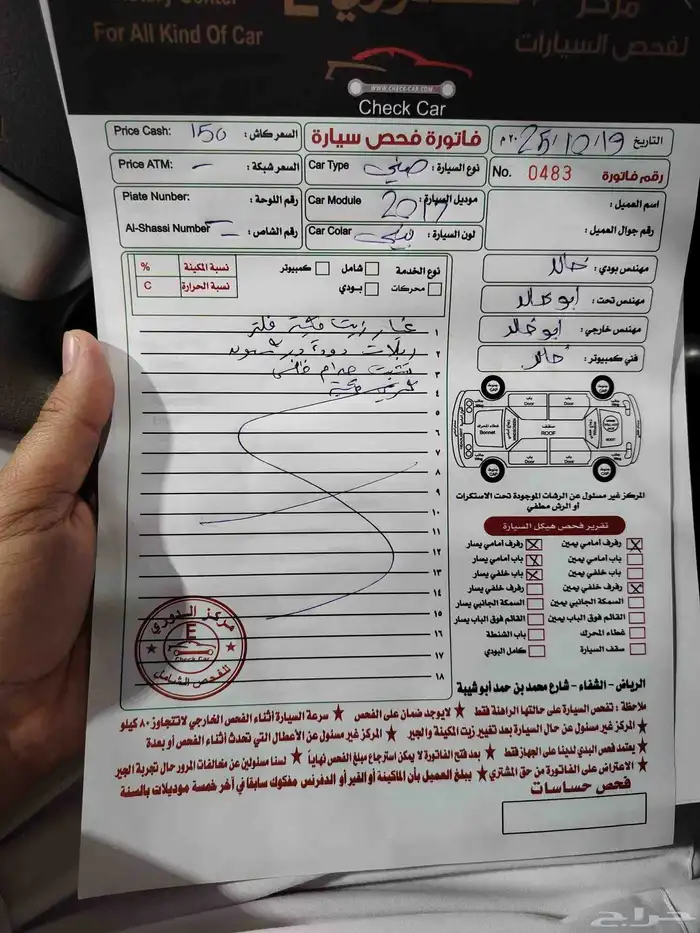 مركز
E
For All Kind Of Car
لفحص السيارات
WWW.CHECK-CAR.COM
Check Car
Price Cash: 150 السعر كاش:
فاتورة فحص سيارة
التاريخ 25/10/19 ٢٠ م
Price ATM: - السعر شبكة:
Car Type نوع السيارة:
No. 0483 رقم فاتورة
Plate Nunber: رقم اللوحة:
Car Module موديل السيارة: 2017
اسم العميل:
Al-Shassi Number رقم الشاص:
Car Colar لون السيارة:
رقم جوال العميل:
نوع الخدمة
شامل
كمبيوتر
محركات
بودي
نسبة المكينة %
نسبة الحرارة C
مهندس بودي: خالد
مهندس تحت: ابو خالد
مهندس خارجي: ابو خالد
فني كمبيوتر: خالد
١ غيار زيت مكينة فلتر
٢
٣
٤
٥
٦
٧
٨
٩
١٠
١١
١٢
١٣
١٤
١٥
١٦
١٧
١٨
باب Door
باب Door
غطاء المحرك Bonnet
سقف ROOF
باب Door
باب Door
المركز غير مسئول عن الرشات الموجودة تحت الاستكرات
أو الرش مطفي
تقرير فحص هيكل السيارة
رفرف أمامي يمين
رفرف أمامي يسار
باب أمامي يمين
باب أمامي يسار
باب خلفي يمين
باب خلفي يسار
رفرف خلفي يمين
رفرف خلفي يسار
السمكة الجانبي يمين
السمكة الجانبي يسار
القائم فوق الباب يمين
القائم فوق الباب يسار
غطاء المحرك
باب الشنطة
سقف السيارة
كامل البودي
مركز الدوري
E
Check Car
للفحص الشامل
الرياض - الشفاء - شارع محمد بن حمد أبو شيبة
ملاحظة: تفحص السيارة على حالتها الراهنة فقط ★ لايوجد ضمان على الفحص ★ سرعة السيارة أثناء الفحص الخارجي لاتتجاوز ٨٠ كيلو
★ المركز غير مسئول عن حال السيارة بعد تغيير زيت المكينة والجير ★ المركز غير مسئول عن الأعطال التي تحدث أثناء الفحص أو بعدة
★ يعتمد فحص البدي لدينا على الجهاز فقط ★ بعد فتح الفاتورة لا يمكن استرجاع مبلغ الفحص نهائياً ★ لسنا مسئولين عن مخالفات المرور حال تجربة الجير
★ الاعتراض على الفاتورة من حق المشتري ★ يبلغ العميل بأن الماكينة أو القير أو الدفرنس مفكوك سابقا في آخر خمسة موديلات بالسنة
فحص حساسات
حراج